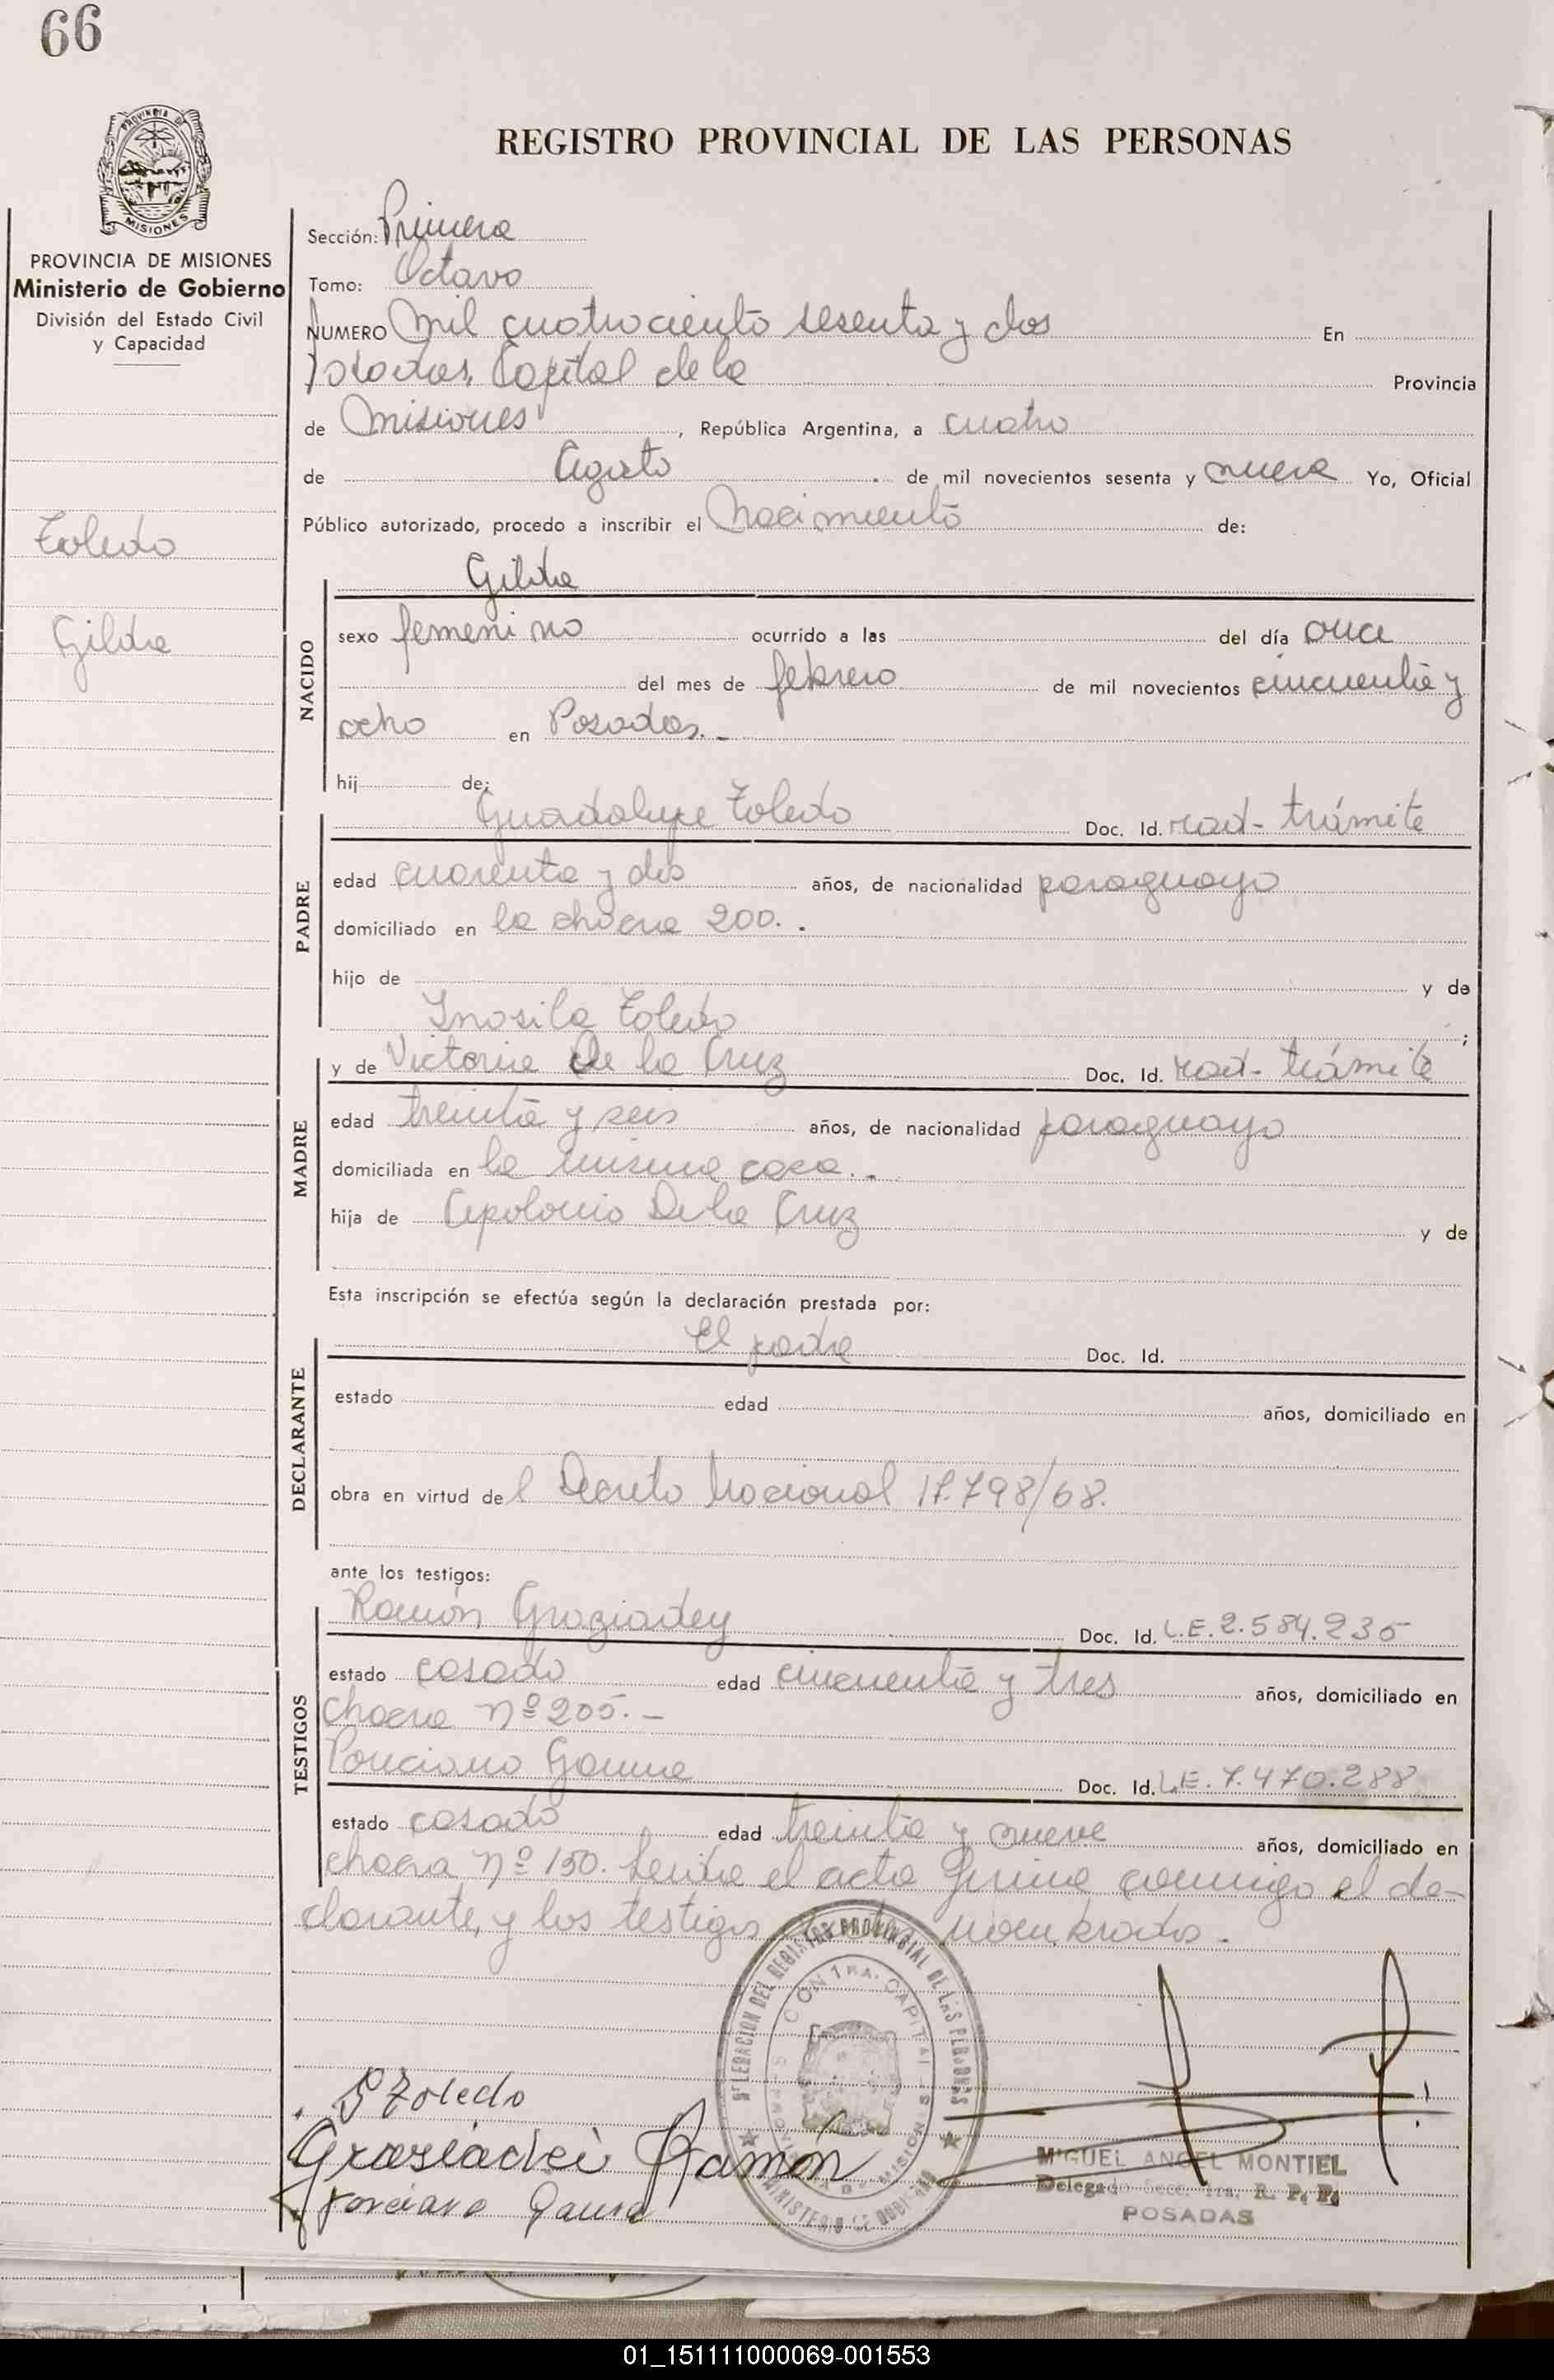 66
PROVINCIA DE
MISIONES
PROVINCIA DE MISIONES
Ministerio de Gobierno
División del Estado Civil
y Capacidad
Toledo
Gilda
REGISTRO PROVINCIAL DE LAS PERSONAS
Sección: Primera
Tomo: Octavo
NUMERO Mil cuatrociento sesenta y dos En
Posadas, Capital de la Provincia
de Misiones, República Argentina, a cuatro
de Agosto de mil novecientos sesenta y nueve Yo, Oficial
Público autorizado, procedo a inscribir el Nacimiento de:
NACIDO
Gilda
sexo femenino ocurrido a las del día once
del mes de febrero de mil novecientos cincuenta y
ocho en Posadas.-
hij de:
PADRE
Guadalupe Toledo Doc. Id. rad- trámite
edad cuarenta y dos años, de nacionalidad paraguayo
domiciliado en la chacra 200..
hijo de y de
Toledo ;
MADRE
y de Victoria De la Cruz Doc. Id. rad- trámite
edad treinta y seis años, de nacionalidad paraguaya
domiciliada en la misma casa..
hija de Apolonio De la Cruz y de
Esta inscripción se efectúa según la declaración prestada por:
DECLARANTE
El padre Doc. Id.
estado edad años, domiciliado en
obra en virtud del Decreto Nacional 17.798/68.
ante los testigos:
TESTIGOS
Ramón Graziadey Doc. Id. L.E.2.584.235
estado casado edad cincuenta y tres años, domiciliado en
Chacra nº 205.-
Ponciano Gauna Doc. Id. L.E.7.470.288
estado casado edad treinta y nueve años, domiciliado en
chacra nº 150. Leída el acta firma conmigo el de-
clarante, y los testigos nombrados.
DELEGACION DEL REGISTRO PROVINCIAL DE LAS PERSONAS
MINISTERIO DE GOBIERNO
G Toledo
Grasiadei Ramón
Ponciano Gauna
MIGUEL ANGEL MONTIEL
Delegado Secc. 1ra. R. P. P.
POSADAS
01_151111000069-001553